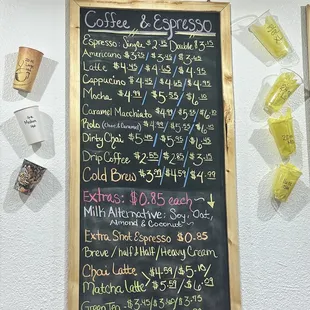 Coffee & Espresso
Espresso: Single $2.85 Double $3.15
Americano $3.25/$3.45/$3.95
Latte $4.45/$4.65/$4.95
Cappuccino $4.45/$4.65/$4.95
Mocha $4.95/$5.45/$6.10
Caramel Macchiato $4.99/$5.25/$6.10
$4.99/$5.25/$6.10
Dirty Chai $5.45/$5.95/$6.45
Drip Coffee $2.55/$2.85/$3.15
Cold Brew $3.99/$4.59/$4.99
Extras: $0.85 each
Milk Alternative: Soy, Oat,
Almond & Coconut
Extra Shot Espresso $0.85
Breve / half & Half / Heavy Cream
Chai Latte $4.59/$5.10/
Matcha latte $5.59/$6.10
Green Tea $3.45/$3.65/$3.95